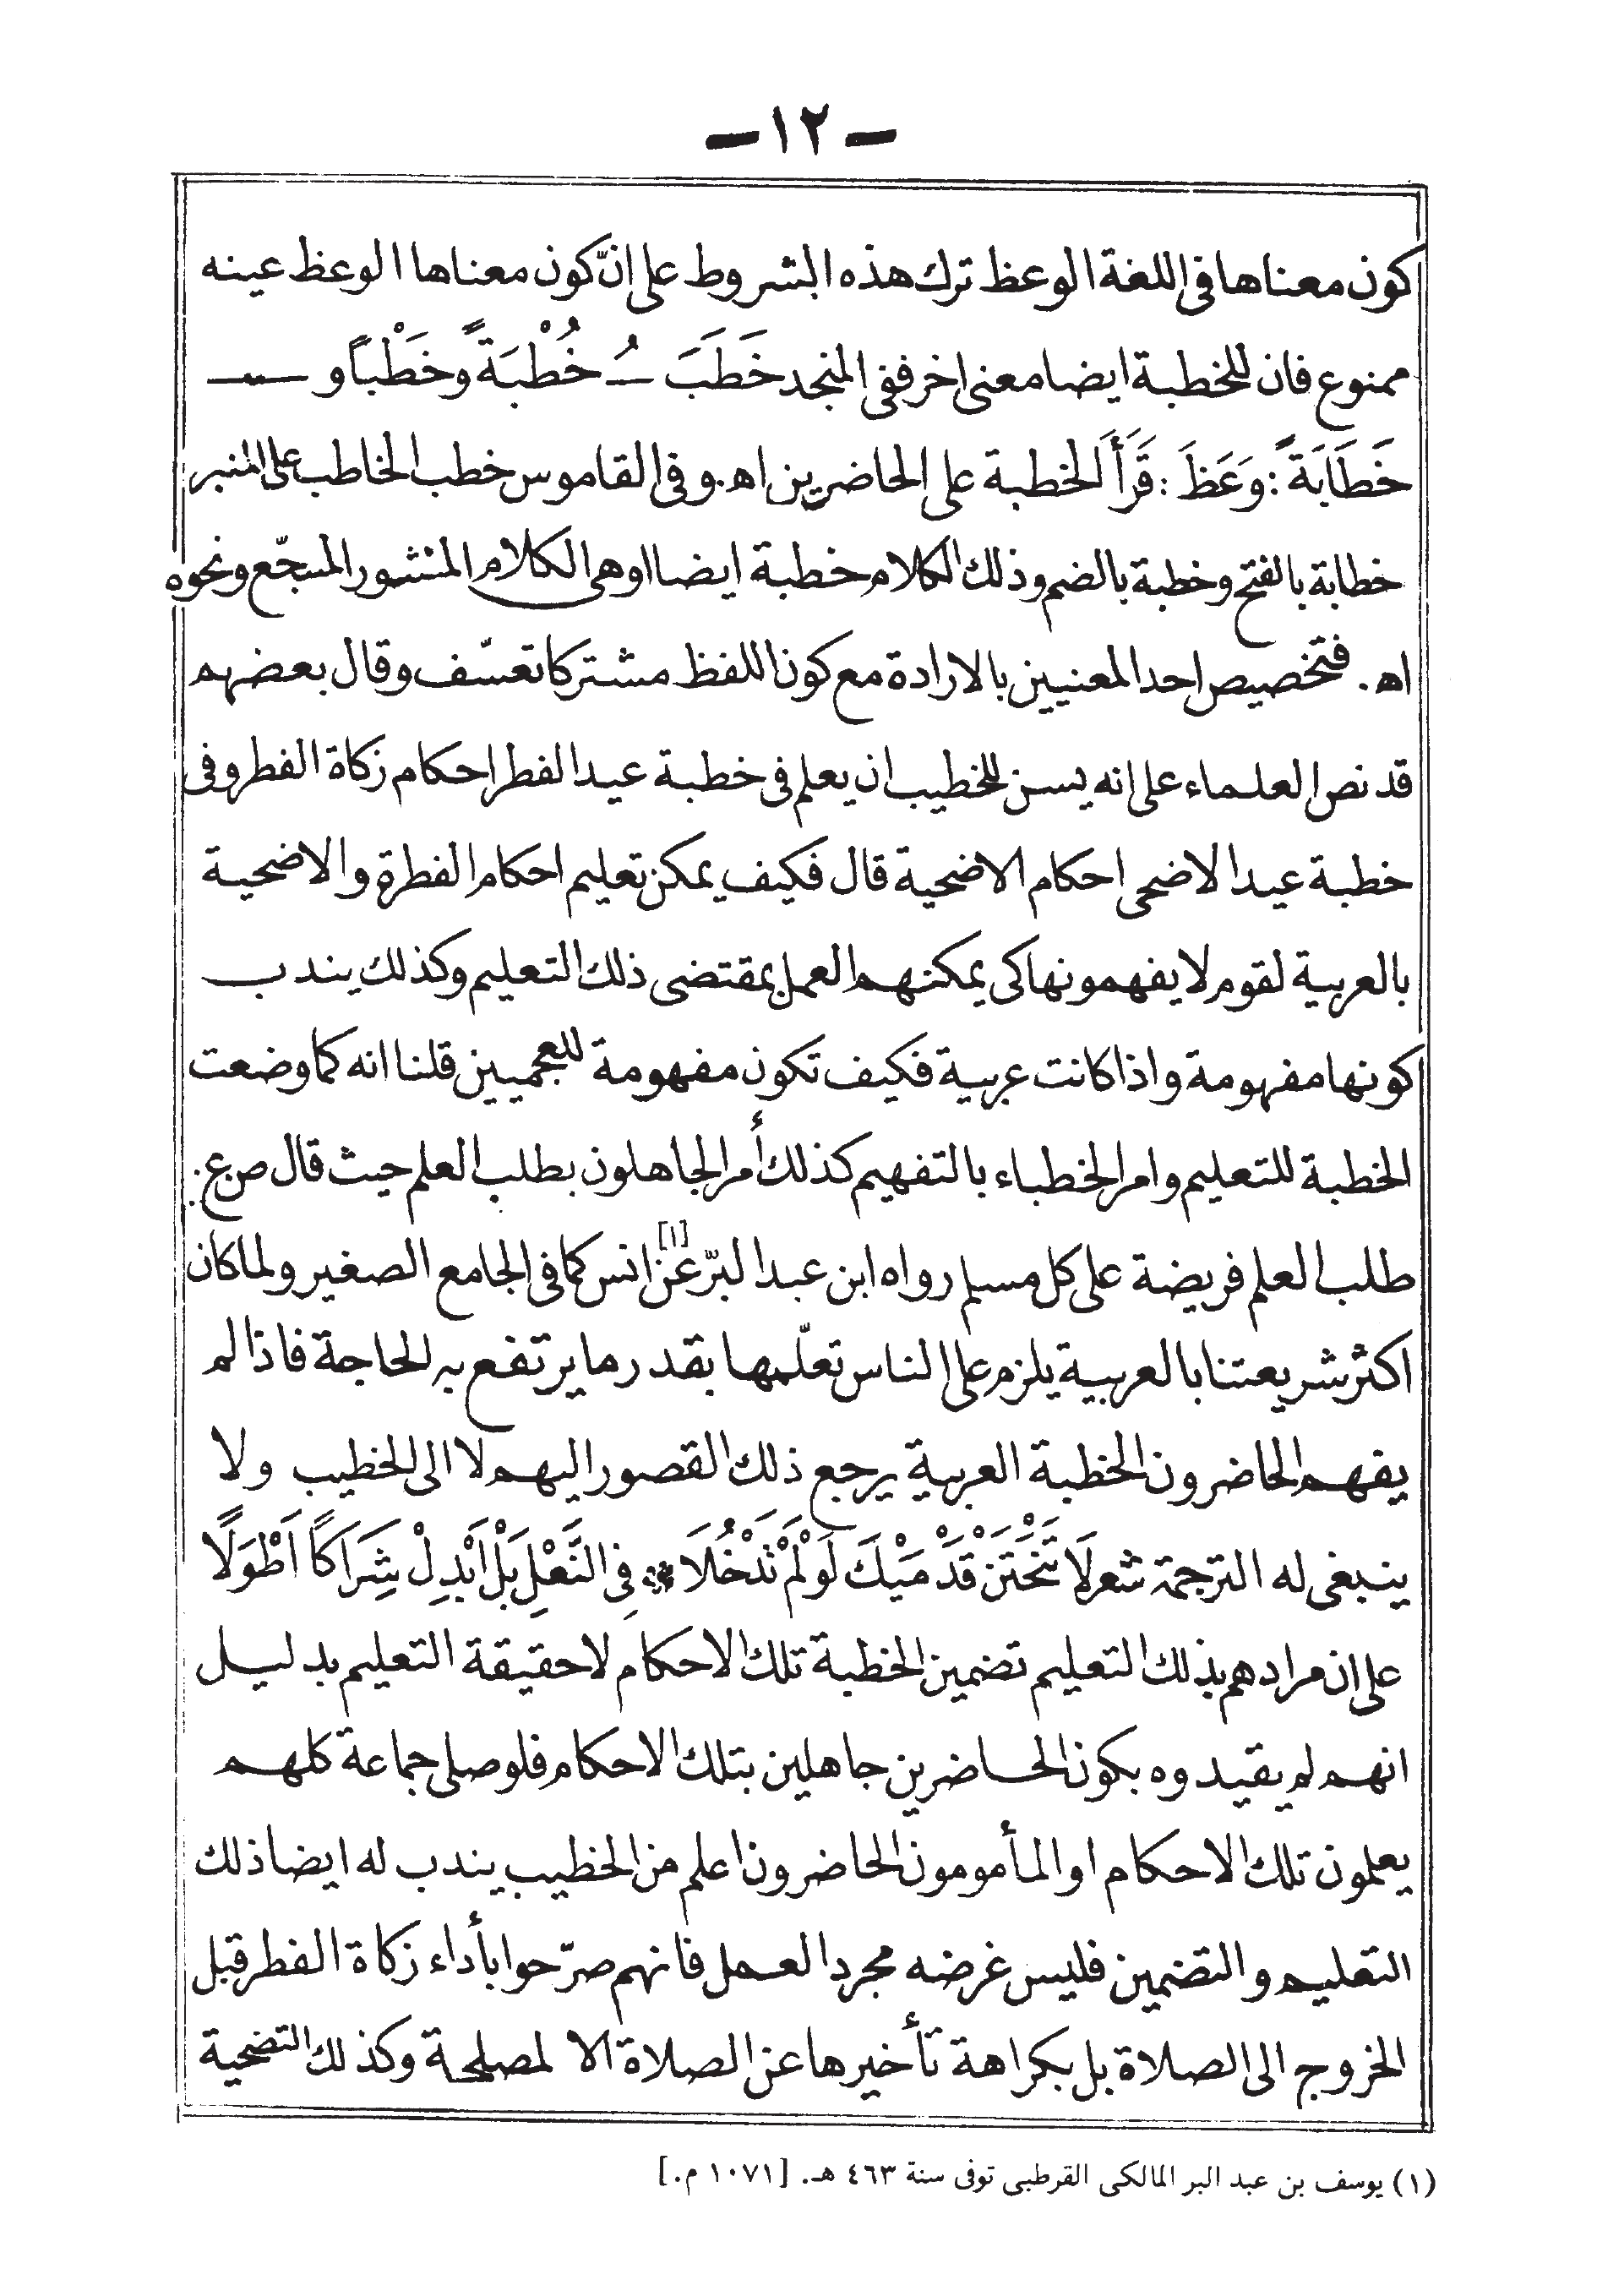 — ١٢ —
كون معناها فى اللغة الوعظ ترك هذه الشروط على انّ كون معناها الوعظ عينه
ممنوع فان للخطبة ايضا معنى اخر ففى المنجد خَطَبَ ـُـ خُطْبَةً وخَطْبًا و ــ
خَطَابَةً : وَعَظَ : قَرَأَ الخطبة على الحاضرين اه. وفى القاموس خطب الخاطب على المنبر
خطابة بالفتح وخطبة بالضم وذلك الكلام خطبة ايضا اوهى الكلام المنثور المسجّع ونحوه
اه. فتخصيص احد المعنيين بالارادة مع كون اللفظ مشتركا تعسّف وقال بعضهم
قد نص العلماء على انه يسن للخطيب ان يعلم فى خطبة عيد الفطر احكام زكاة الفطر وفى
خطبة عيد الاضحى احكام الاضحية قال فكيف يمكن تعليم احكام الفطرة والاضحية
بالعربية لقوم لا يفهمونها كى يمكنهم العمل بمقتضى ذلك التعليم وكذلك يندب
كونها مفهومة واذا كانت عربية فكيف تكون مفهومة للعجميين قلنا انه كما وضعت
الخطبة للتعليم وامر الخطباء بالتفهيم كذلك أمر الجاهلون بطلب العلم حيث قال ص ع:
طلب العلم فريضة على كل مسلم رواه ابن عبد البرّ [١] عن انس كما فى الجامع الصغير ولما كان
اكثر شريعتنا بالعربية يلزم على الناس تعلّمها بقدر ما يرتفع به الحاجة فاذا لم
يفهم الحاضرون الخطبة العربية يرجع ذلك القصور اليهم لا الى الخطيب ولا
ينبغى له الترجمة شعر لَا تَخْتَنَنْ قَدْمَيْكَ لَوْ لَمْ تَدْخُلَا * فِى النَّعْلِ بَلْ اَبْدِلْ شِرَاكًا اَطْوَلًا
على ان مرادهم بذلك التعليم تضمين الخطبة تلك الاحكام لا حقيقة التعليم بدليل
انهم لم يقيدوه بكون الحاضرين جاهلين بتلك الاحكام فلو صلى جماعة كلهم
يعلمون تلك الاحكام او المأمومون الحاضرون اعلم من الخطيب يندب له ايضا ذلك
التعليم والتضمين فليس غرضه مجرد العمل فانهم صرّحوا بأداء زكاة الفطر قبل
الخروج الى الصلاة بل بكراهة تأخيرها عن الصلاة الا لمصلحة وكذلك التضحية
(١) يوسف بن عبد البر المالكى القرطبى توفى سنة ٤٦٣ هـ. [١٠٧١ م.]